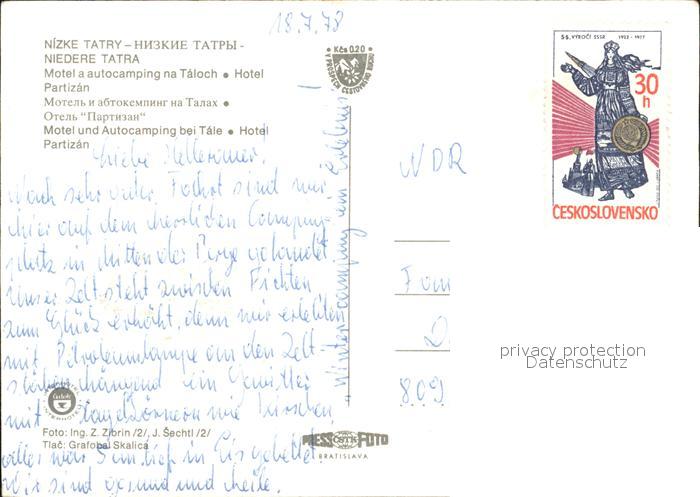 18.7.78
NÍZKE TATRY – НИЗКИЕ ТАТРЫ -
NIEDERE TATRA
Motel a autocamping na Táloch ● Hotel
Partizán
Мотель и автокемпинг на Талах ●
Отель "Партизан"
Motel und Autocamping bei Tále ● Hotel
Partizán
Kčs 0,20
V PROSPECH CESTOVNÉHO RUCHU
55. VÝROČÍ SSSR 1922 - 1977
30
h
ČESKOSLOVENSKO
Liebe
Nach sehr guter Fahrt sind wir
hier auf dem herrlichen Camping-
platz in mitten der Berge gelandet.
Unser Zelt steht zwischen Fichten
zum Glück erhöht, denn wir erlebten
mit Petroleumlampe an den Zelt-
hängend ein Gewitter
mit Hagelkörnern wie Kirschen
alles war 5 cm tief in Eis gebettet.
Wir sind gesund und heile.
"Wintercamping" ein Erlebnis!
NDR
Fam
D
809
privacy protection
Datenschutz
Foto: Ing. Z. Zibrin /2/, J. Šechtl /2/
Tlač: Grafobal Skalica
PRESSFOTO
BRATISLAVA